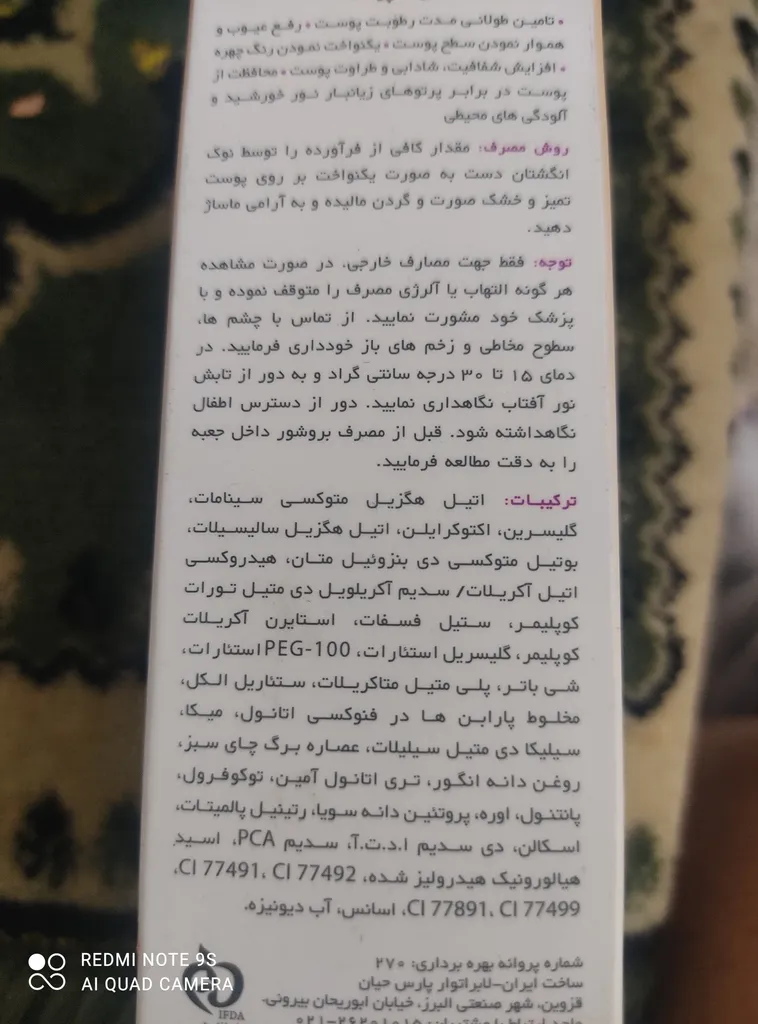 • تامین طولانی مدت رطوبت پوست • رفع عیوب و
هموار نمودن سطح پوست • یکنواخت نمودن رنگ چهره
• افزایش شفافیت، شادابی و طراوت پوست • محافظت از
پوست در برابر پرتوهای زیانبار نور خورشید و
آلودگی های محیطی
روش مصرف: مقدار کافی از فرآورده را توسط نوک
انگشتان دست به صورت یکنواخت بر روی پوست
تمیز و خشک صورت و گردن مالیده و به آرامی ماساژ
دهید.
توجه: فقط جهت مصارف خارجی. در صورت مشاهده
هر گونه التهاب یا آلرژی مصرف را متوقف نموده و با
پزشک خود مشورت نمایید. از تماس با چشم ها،
سطوح مخاطی و زخم های باز خودداری فرمایید. در
دمای ۱۵ تا ۳۰ درجه سانتی گراد و به دور از تابش
نور آفتاب نگاهداری نمایید. دور از دسترس اطفال
نگاهداشته شود. قبل از مصرف بروشور داخل جعبه
را به دقت مطالعه فرمایید.
ترکیبات: اتیل هگزیل متوکسی سینامات،
گلیسرین، اکتوکرایلن، اتیل هگزیل سالیسیلات،
بوتیل متوکسی دی بنزوئیل متان، هیدروکسی
اتیل آکریلات/ سدیم آکریلویل دی متیل تورات
کوپلیمر، ستیل فسفات، استایرن آکریلات
کوپلیمر، گلیسریل استئارات، PEG-100 استئارات،
شی باتر، پلی متیل متاکریلات، ستئاریل الکل،
مخلوط پارابن ها در فنوکسی اتانول، میکا،
سیلیکا دی متیل سیلیلات، عصاره برگ چای سبز،
روغن دانه انگور، تری اتانول آمین، توکوفرول،
پانتنول، اوره، پروتئین دانه سویا، رتینیل پالمیتات،
اسکالن، دی سدیم ا.د.ت.آ، سدیم PCA، اسید
هیالورونیک هیدرولیز شده، CI 77491، CI 77492،
CI 77891، CI 77499، اسانس، آب دیونیزه.
شماره پروانه بهره برداری: ۲۷۰
ساخت ایران-لابراتوار پارس حیان
قزوین، شهر صنعتی البرز، خیابان ابوریحان بیرونی.
IFDA
REDMI NOTE 9S
AI QUAD CAMERA